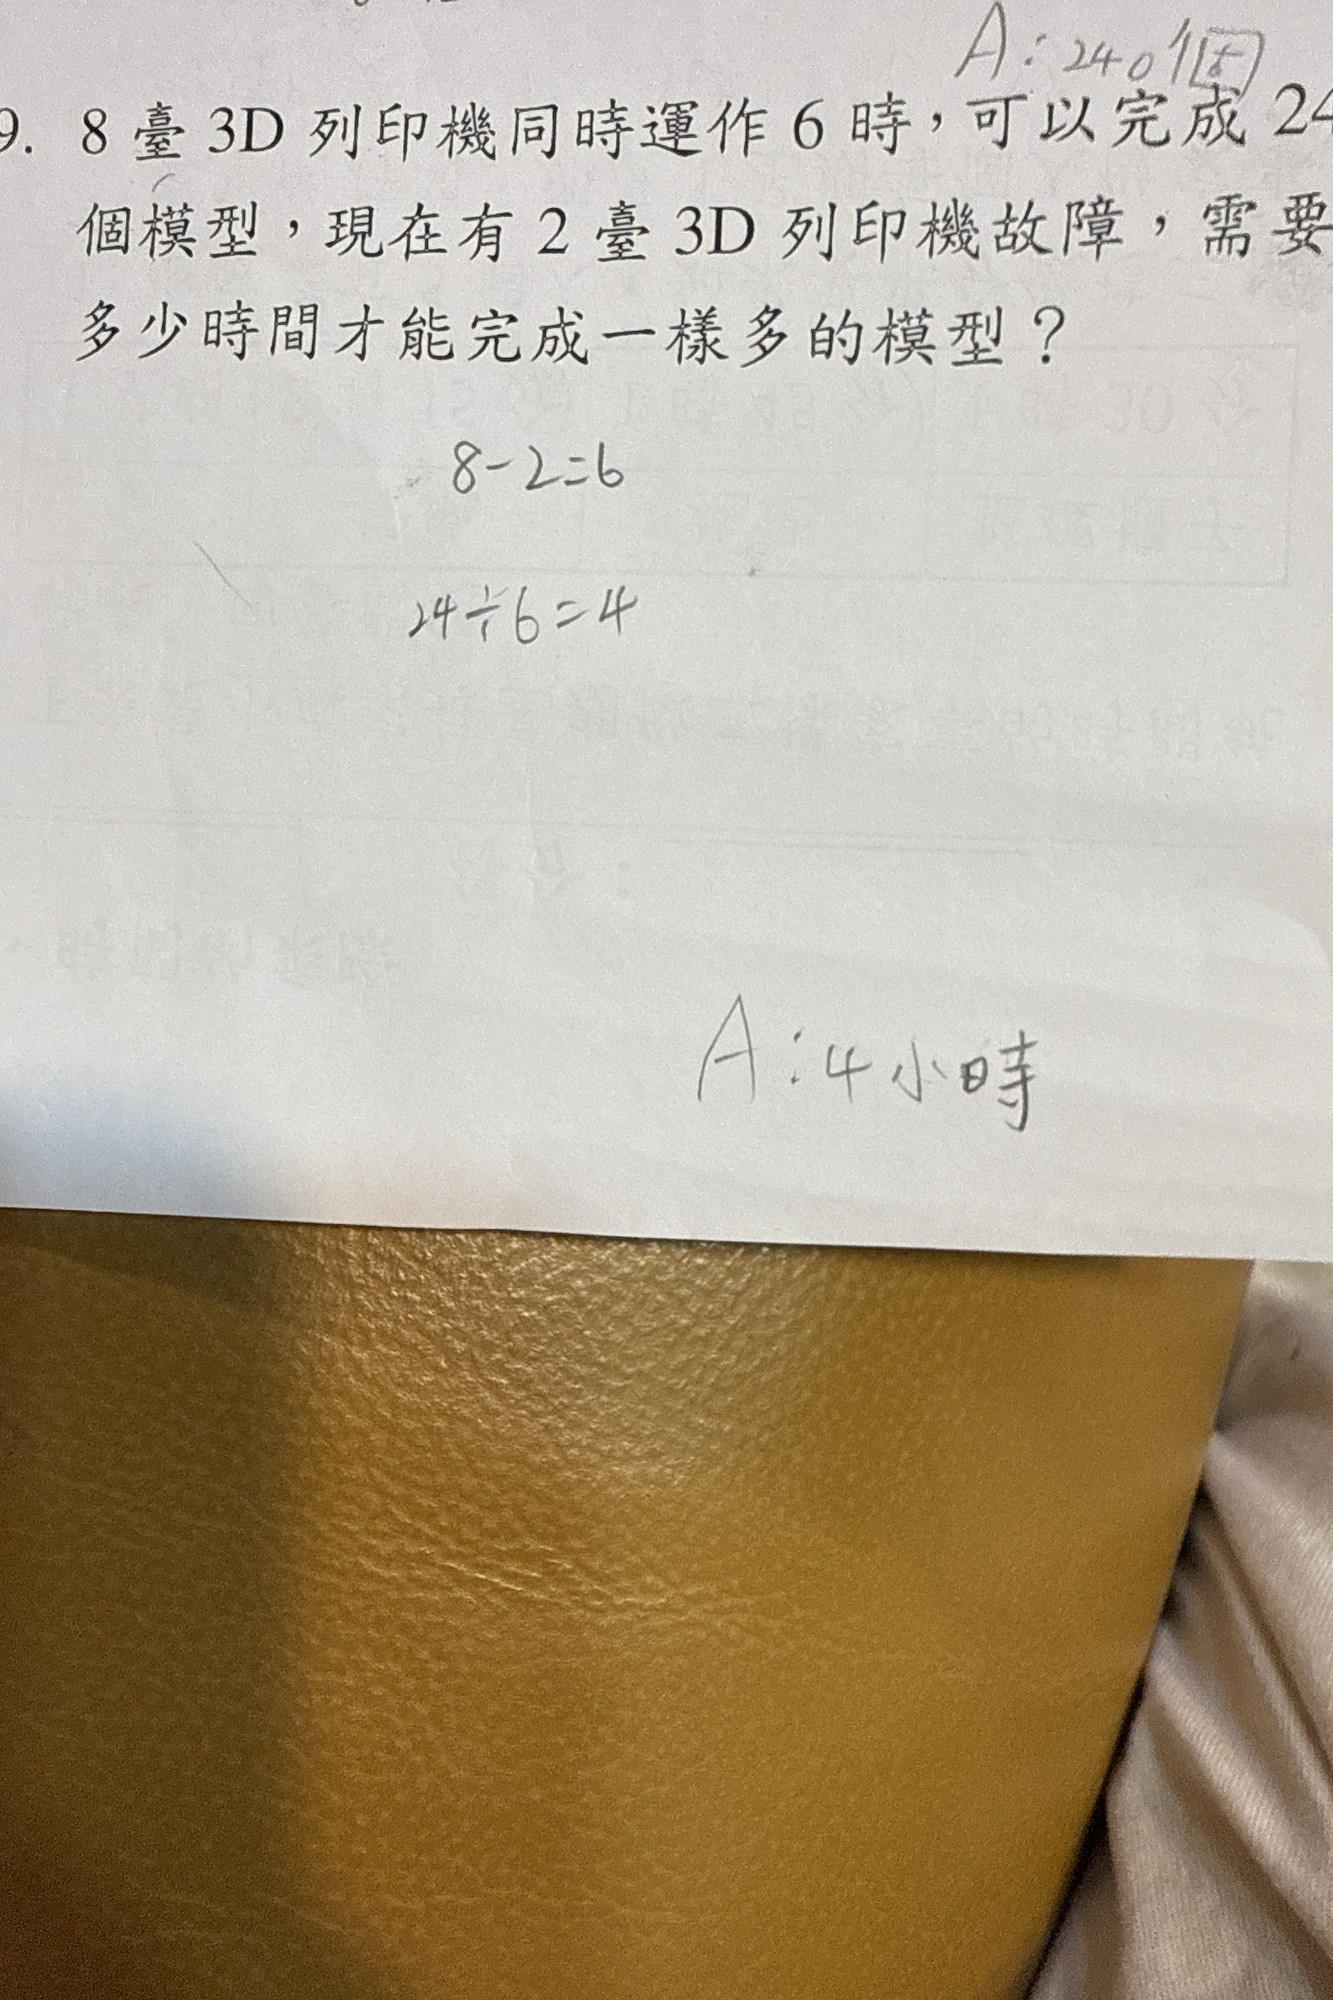 A:240個
9. 8 臺 3D 列印機同時運作 6 時，可以完成 24
個模型，現在有 2 臺 3D 列印機故障，需要
多少時間才能完成一樣多的模型？
8-2=6
24÷6=4
A:4小時